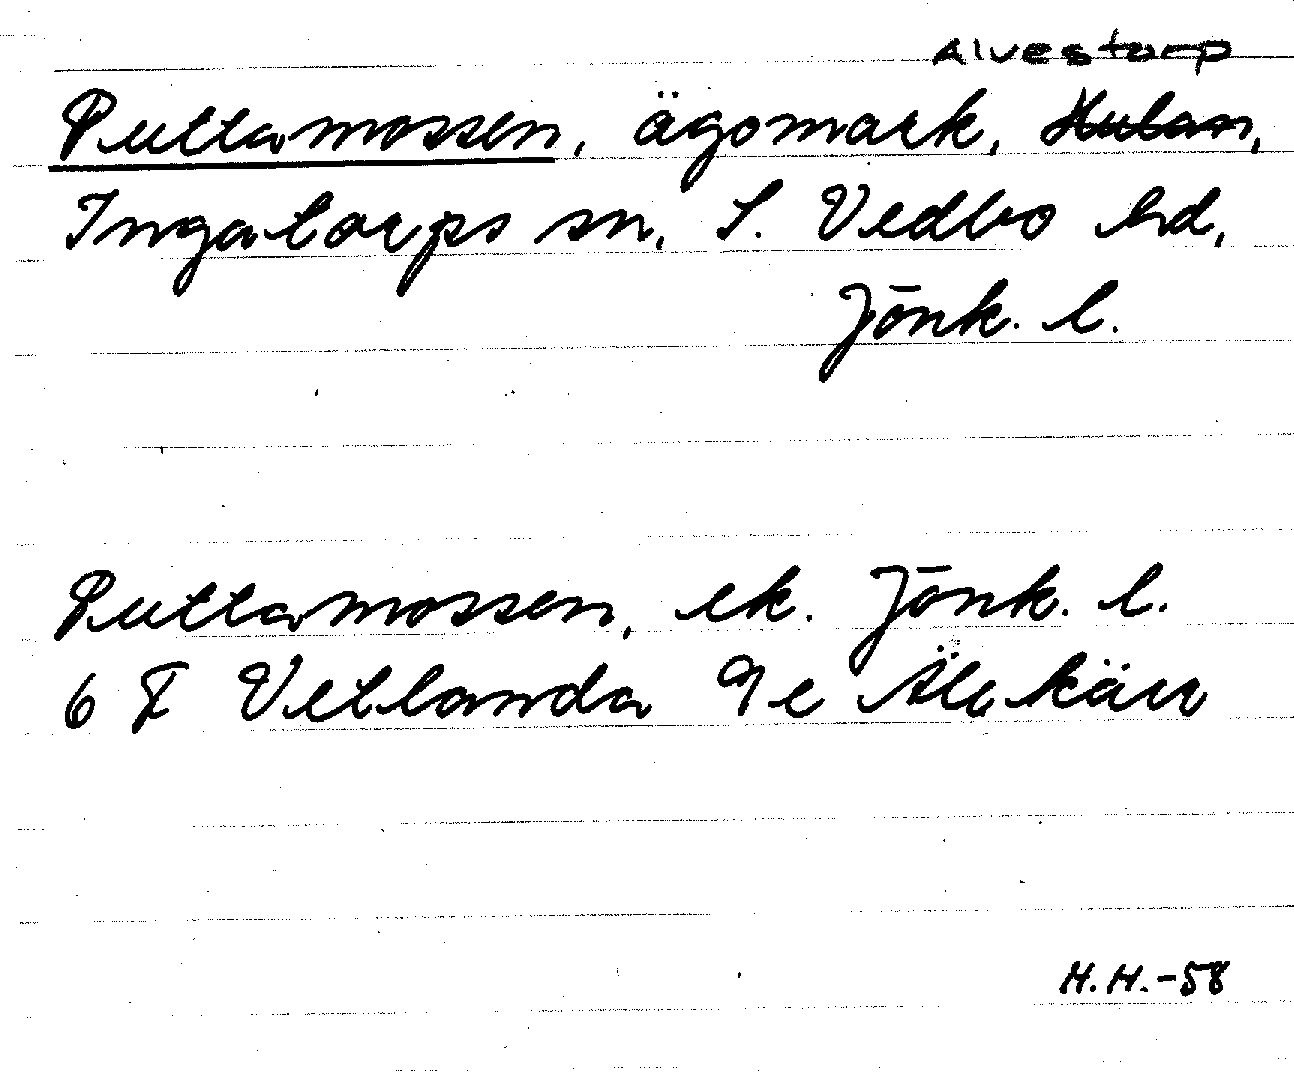 Alvestorp
Puttamossen, ägomark, Hulan,
Ingatorps sn, S. Vedbo hd,
Jönk. l.
Puttamossen, ek. Jönk. l.
6 F Vetlanda 9 e Älekärr
H.H.-58